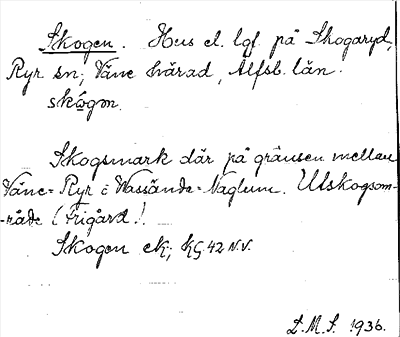 Skogen. Hus el. lgf. på Skogaryd,
Ryr sn; Väne härad, Älfsb. län.
skωgən.
Skogsmark där på gränsen mellan
Väne-Ryr o Wassända-Naglum. Utskogsom-
-råde (Frigård!).
Skogen ek; kG 42 N.V.
L.M.S. 1936.